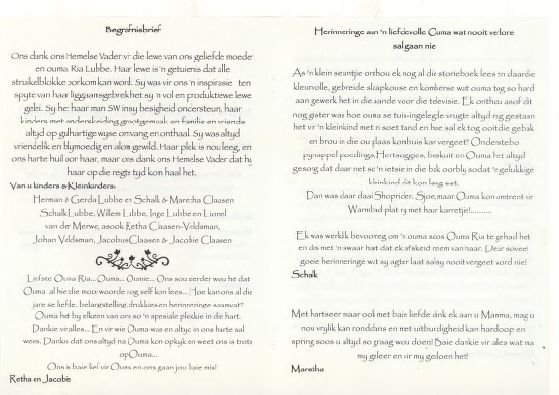 Begrafnisbrief
Ons dank ons Hemelse Vader vir die lewe van ons geliefde moeder
en ouma Ria Lubbe. Haar lewe is 'n getuienis dat alle
struikelblokke oorkom kan word. Sy was vir ons 'n inspirasie ten
spyte van haar liggaamsgebrek het sy 'n vol en produktiewe lewe
gelei. Sy het haar man SW in sy besigheid ondersteun, haar
kinders met onderskeiding grootgemaak en familie en vriende
altyd op gulhartige wyse ontvang en onthaal. Sy was altyd
vriendelik en blymoedig en alom gewild. Haar plek is nou leeg, en
ons harte huil oor haar, maar ons dank ons Hemelse Vader dat hy
haar op die regte tyd kom haal het.
Van u kinders & Kleinkinders:
Herman & Gerda Lubbe en Schalk & Maretha Claasen
Schalk Lubbe, Willem Lubbe, Inge Lubbe en Lionel
van der Merwe, asook Retha Claasen-Veldsman,
Johan Veldsman, Jacobus Claasen & Jacobie Claasen
Liefste Ouma Ria... Ouma... Oumie... Ons sou eerder wou hê dat
Ouma al hierdie mooi woorde nog self kon lees... Hoe kan ons al die
jare se liefde, belangstelling, drukkies en herinneringe saamvat?
Ouma het by elkeen van ons so 'n spesiale plekkie in die hart.
Dankie vir alles... En vir wie Ouma was en altyd in ons harte sal
wees. Dankie dat ons altyd na Ouma kon opkyk en weet ons is trots
op Ouma...
Ons is baie lief vir Ouma en ons gaan jou baie mis!
Retha en Jacobie
Herinneringe aan 'n liefdevolle Ouma wat nooit verlore
sal gaan nie
As 'n klein seuntjie onthou ek nog al die storieboek lees en daardie
kleurvolle, gebreide slaapkouse en komberse wat ouma tog so hard
aan gewerk het in die aande voor die televisie. Ek onthou asof dit
nog gister was hoe ouma se tuis-ingelegde vrugte altyd reg gestaan
het vir 'n kleinkind met 'n soet tand en hoe sal ek tog ooit die gebak
en brou in die ou plaas kombuis kar vergeet? Onderstebo
pynappel poedings, Hertsoggies, beskuit en Ouma het altyd
gesorg dat daar net so 'n ietsie in die blik oorbly sodat 'n gelukkige
kleinkind dit kon leeg eet.
Dan was daar daai Shoprider. Sjoe, maar Ouma kon omtrent vir
Warmbad plat ry met haar karretjie!...........
Ek was werklik bevoorreg om 'n ouma soos Ouma Ria te gehad het
en dis met 'n swaar hart dat ek afskeid neem van haar. Deur soveel
goeie herinneringe wit sy agter laat sal sy nooit vergeet word nie!
Schalk
Met hartseer maar ook met baie liefde dink ek aan u Mamma, mag u
nou vrylik kan ronddans en met uitbundigheid kan hardloop en
spring soos u altyd so graag wou doen! Baie dankie vir alles wat na
my geleer en vir my gedoen het!
Maretha